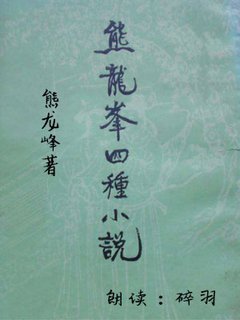 熊龍峯四種小説
熊龙峰著
朗读：碎羽